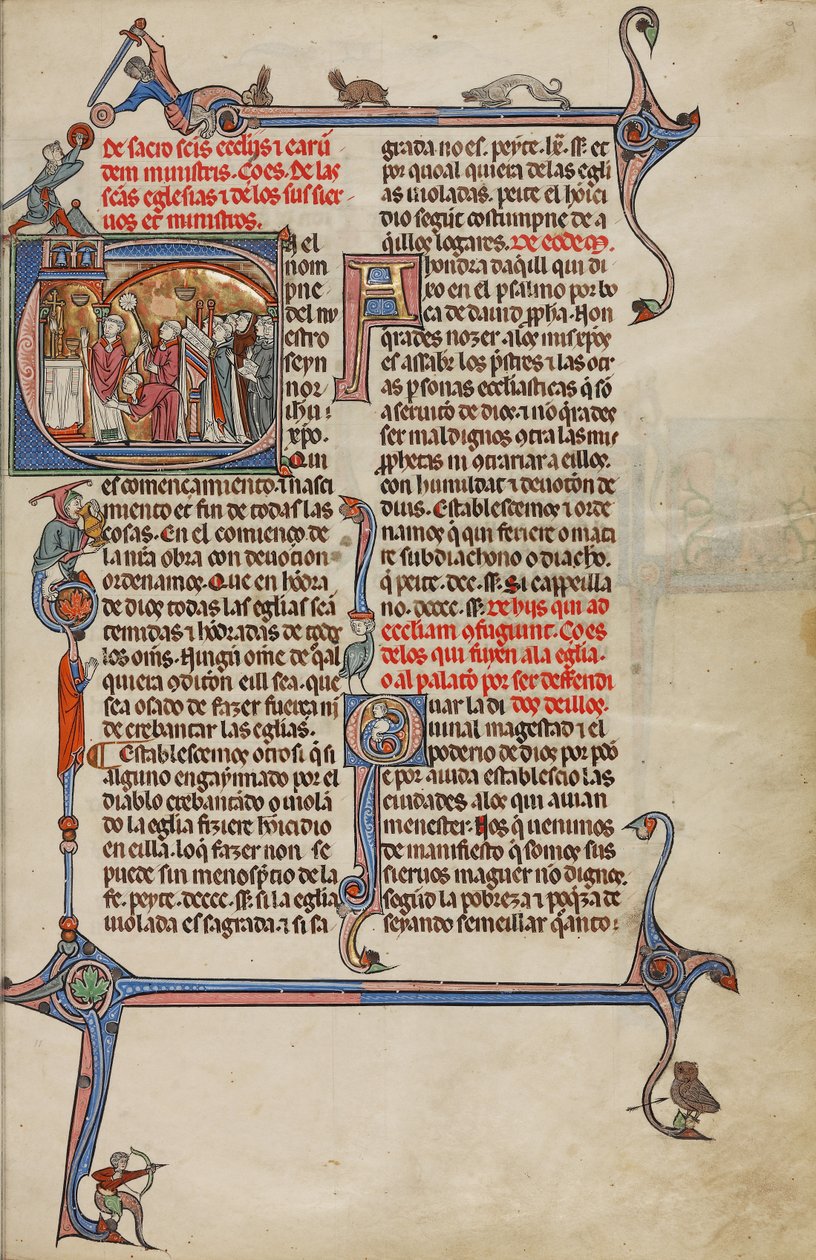 9
De sacro scis ecclijs ⁊ earū
dem ministris. Co es. De las
scās eglesias ⁊ de los sus sier
uos et ministros.
En el
nom
pne
del nu
estro
seyn
nor
ihu
xp̄o.
Qui
es començamiento. ⁊ nasci
miento et fin de todas las
cosas. En el comienço de
la nr̄a obra con deuotion
ordenamos. Que en hōdra
de dios todas las eglias seā
temidas ⁊ hōdradas de todos
los oms. Ningū ome de q̄al
quiera 9diciōn eill sea. que
sea osado de fazer fuerça ni
de crebantar las eglias.
¶ Establescemos otrosi q̄ si
alguno engaynnado por el
diablo crebantādo o uiolā
do la eglia fiziere hōicidio
en eilla. lo q̄ fazer non se
puede sin menosp̄cio de la
fe. peyte. dcccc. ss̄. si la eglia
uiolada es sagrada. ⁊ si sa
grada no es. peyte. lx̄. ss̄. et
por quoal quiera delas egli
as uioladas. peite el hōici
dio segūt costumpne de a
q̄illos logares. De eodem.
A hondra daq̄ill qui di
xo en el psalmo por bo
ca de dauid p̄pha. Non
q̄rades nozer alos mis xp̄os
es assab̄. los p̄stres ⁊ las otr
as p̄sonas ecclesiasticas q̄ sō
a seruicio de dios. ⁊ nō q̄rades
ser malignos 9tra las mis
p̄phetas ni 9trariar a eillos.
con humildat ⁊ deuotiōn de
dius. Establescemos ⁊ orde
namos q̄ qui feriere o mata
re subdiachono o diacho.
q̄ peite. dcc. ss̄. Si cappeilla
no. dcccc. ss̄. De hijs qui ad
eccliam 9fugiunt. Co es
delos qui fuyen ala eglia.
o al palacio por ser deffendi
dos deillos.
Quar la di
uinal magestad ⁊ el
poderio de dios por p̄po
e por aiuda establescio las
ciudades alos qui auian
menester. Nos q̄ uenimos
de manifiesto q̄ somos sus
sieruos maguer nō dignos.
segūd la pobreza ⁊ poq̄za de
seyando semeillar q̄anto